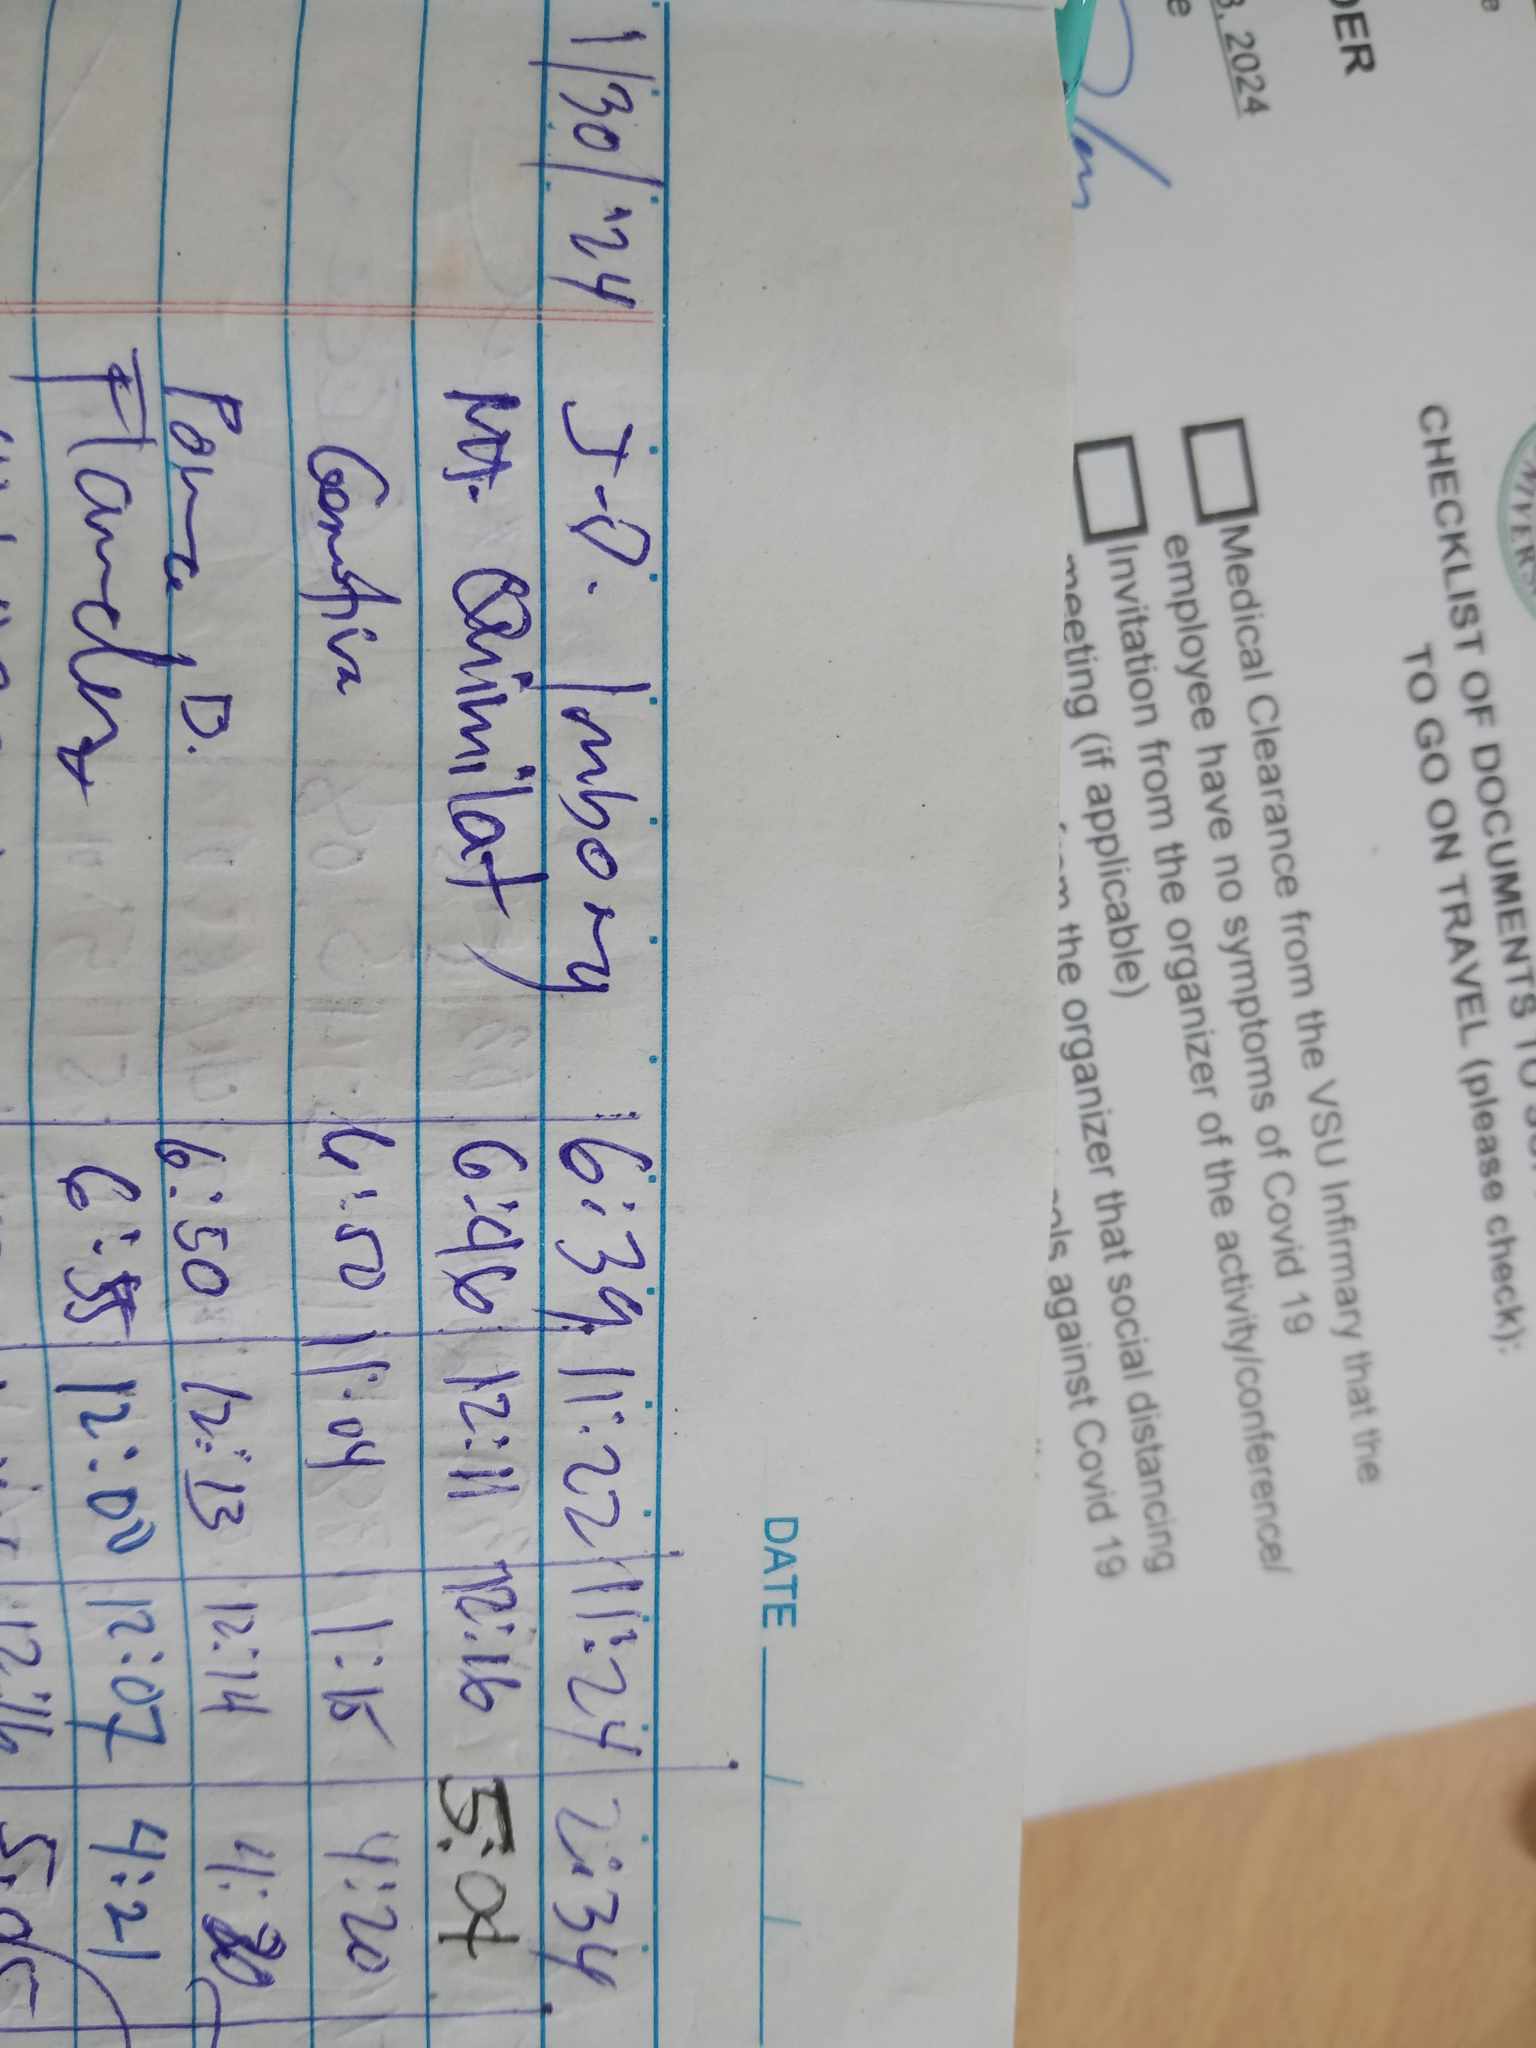 DER
3, 2024
CHECKLIST OF DOCUMENTS TO
TO GO ON TRAVEL (please check):
Medical Clearance from the VSU Infirmary that the
employee have no symptoms of Covid 19
Invitation from the organizer of the activity/conference/
meeting (if applicable)
the organizer that social distancing
against Covid 19
DATE / /
1/30/'24 J.O. Imbory 6:39 11:22 11:24 2:34
Quimilat 6:46 12:11 12:16 5:04
6:50 11:04 1:15 4:20
Ponce, D. 6:50 12:13 12:14 4:20
Flandez 6:55 12:00 12:07 4:21
12:16 5:05